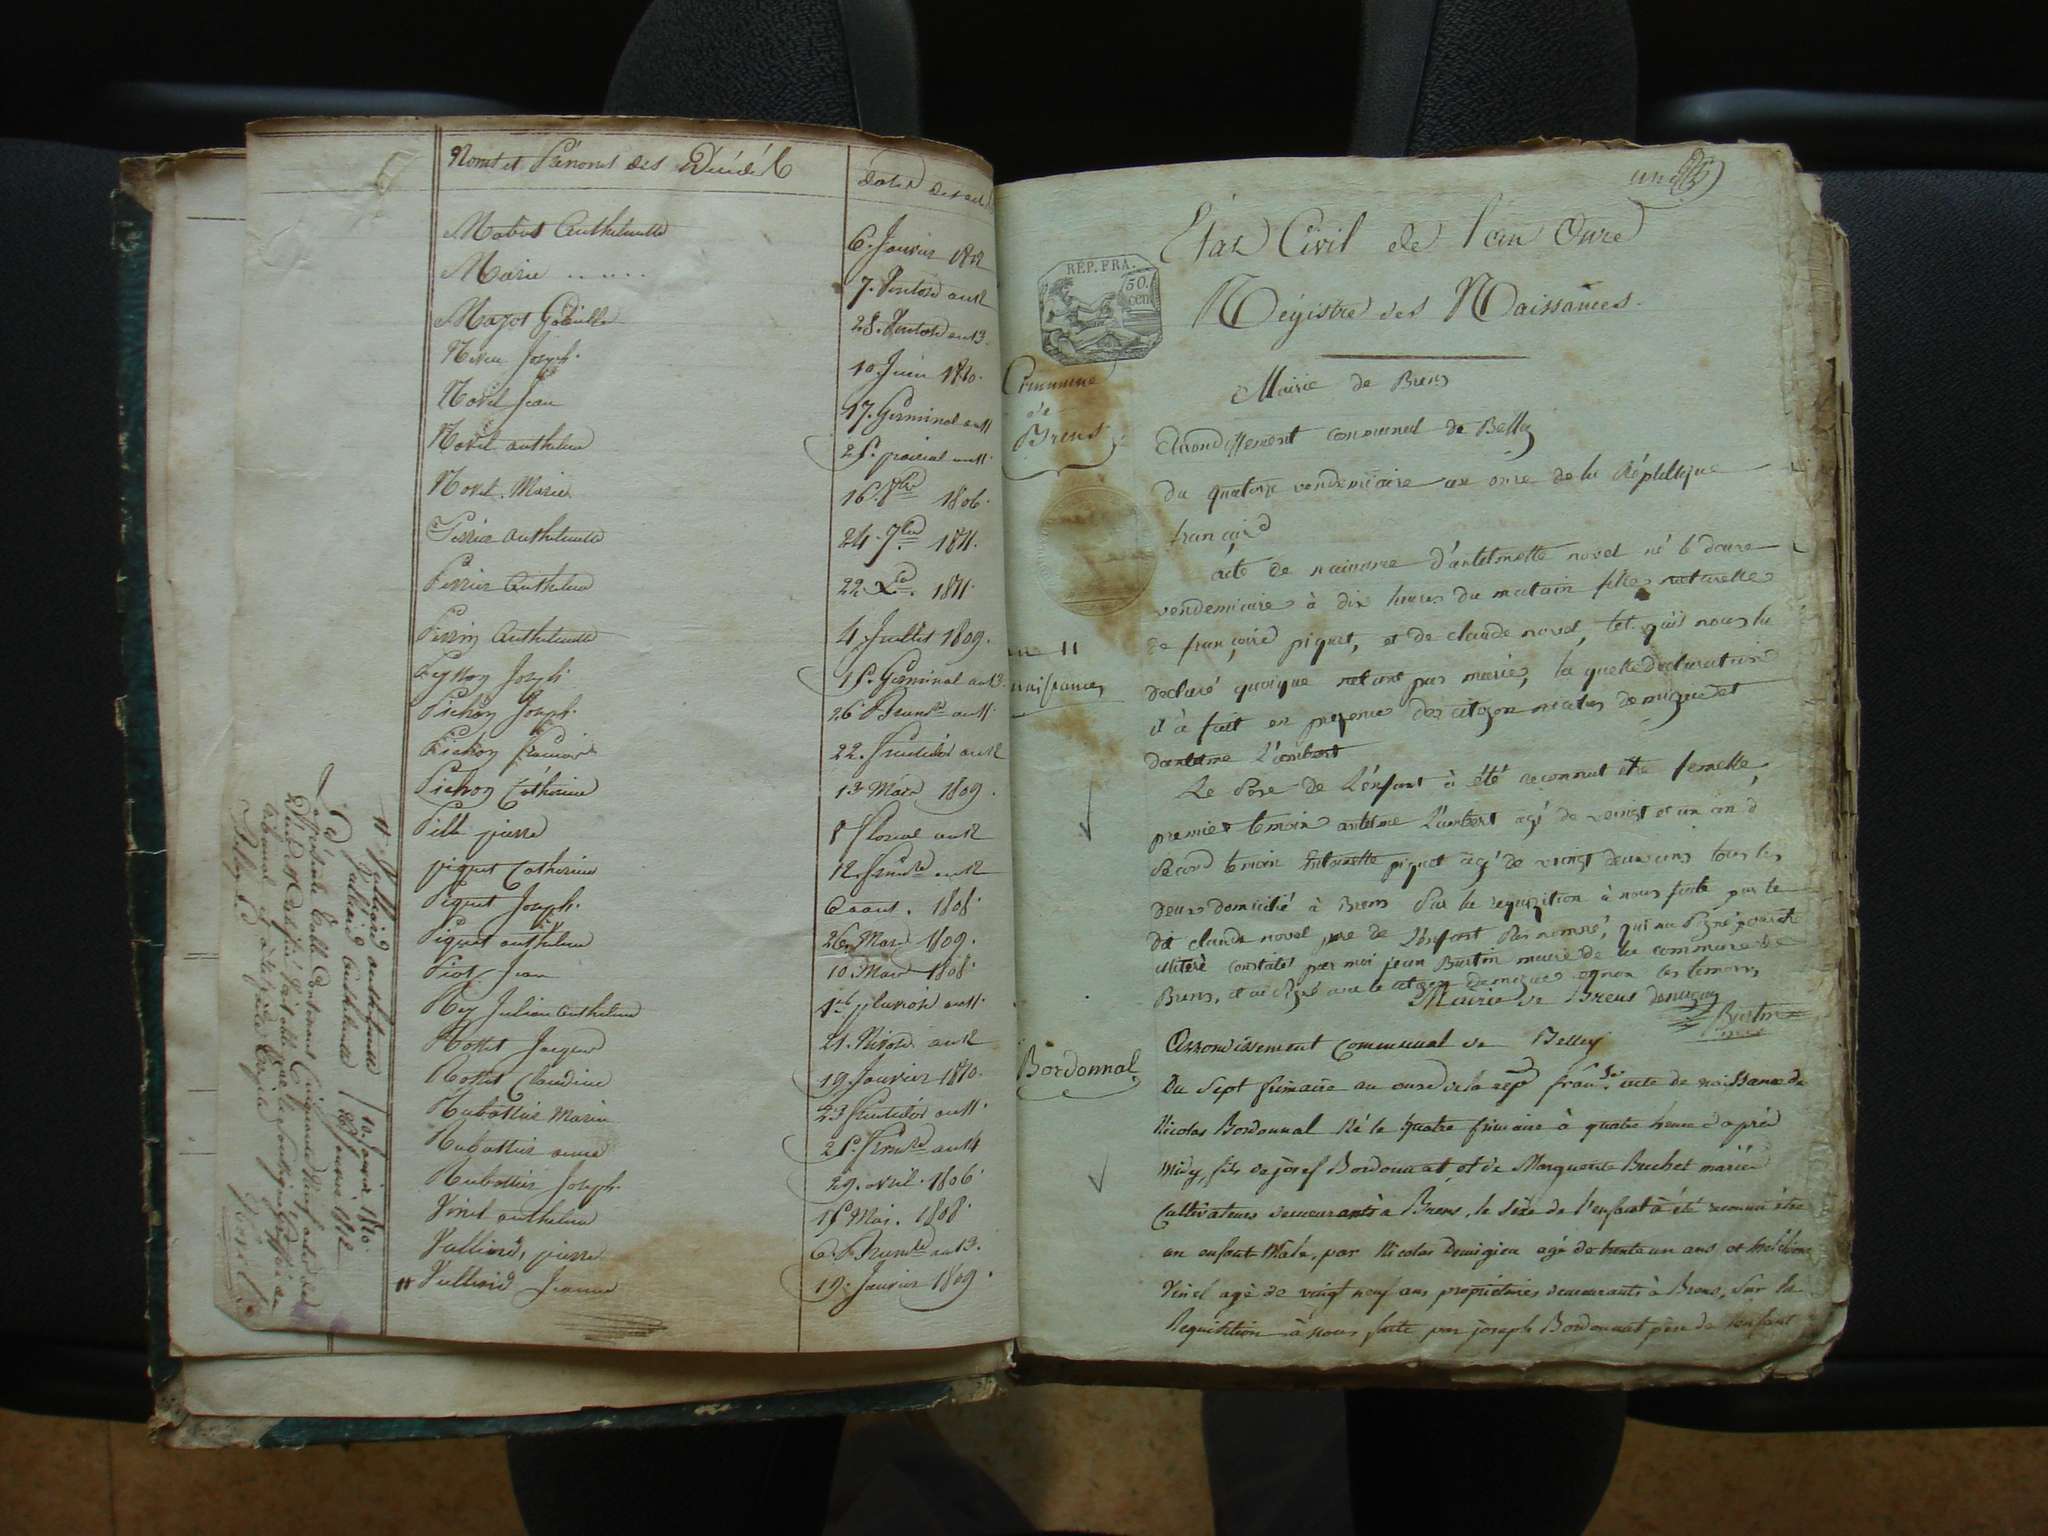 Noms et Prénoms des Décédés
dates des act
Mabit Anthelmette
6. Janvier 1812
Marie
7. Ventose an 12
Mazot
28. Ventose an 13.
Joseph.
10. Juin 1810.
Novel Jean
17. Germinal an 11
Novel anthelme
25. prairial an 11.
Novel. Marie
16. 8bre 1806.
Perrier anthelmette
24. 7bre 1811.
Perrier Anthelme
22 Xbre. 1811.
Perrin Anthelmette
4. Juillet 1809.
Peysson Joseph.
15. Germinal an 13.
Pichon Joseph.
26. Brumre an 11.
Pichon francois
22. fructidor an 12
Pichon Catherine
13 Mars 1809.
Pille pierre
8 floreal an 12
piquet Catherine
12. frimre an 12
Piquet Joseph.
6 aout. 1808.
Piquet anthelme
26. Mars 1809.
Piot Jean
10. Mars 1808.
Rey Julien Anthelme
1er pluviose an 11.
Rosset Jacques
21. Nivose an 12
Rosset Claudine
19. Janvier 1810.
Rubattier Marie
23 fructidor an 11.
Rubattier anne
25. frimre an 14
Rubattier Joseph.
29. avril. 1806.
Vinet anthelme
15 Mai. 1808.
Vulliard, pierre
6. Brumre an 13.
Vulliard Jeanne
19. Janvier 1809.
Vulliard anthelmette 10. Janvier 1810.
Vulliard Anthelmette
La présente Table Contenant Cinquante neuf actes de
Décès
un
Etat Civil de l'an Onze
Régistre des Naissances.
RÉP. FRA.
50. cen.
Commune
de
Brens
Mairie de Brens
Arrondissement communal de Belley
du quatorze vendemiaire an onze de la République
française
acte de naissance d'antelmette novel né le douze
vendemiaire à dix heures du matain fille naturelle
de françoise piquet, et de claude novel, tel qu'il nous la
an 11
naissances
declaré quoique netant pas marié, la quelle declaration
il à fait en presence des citoyen nicolas demigneux et
dantelme Lambert
Le Sexe de L'enfant à été reconnut être femelle,
premier temoin antelme Lambert agé de veingt et un an
second temoin piquet agé de vingt deux ans tous les
deux domicilié à Brens Sur la requisition à nous faite par le
dit claude novel pere de L'enfant
constaté par moi jean Burtin maire de la commune de
Brens, et ai signé avec le citoyen demigneux et non les temoins
Mairie de Brens
Burtin
Arrondissement Communal de Belley
Bordonnal
Du Sept frimaire an onze de la repe franse. acte de naissance de
Nicolas Bordonnal né le quatre frimaire à quatre heure d'après
midy, fils de josef Bordonnat et de Marguerite Buchet mariés
cultivateurs demeurants à Brens, le sexe de l'enfant à été reconnu être
un enfant Male, par Nicolas Demigieu agé de trente un ans et
Vinet agé de vingt neuf ans propriétaires demeurants à Brens, Sur la
Requisition à nous faite par joseph Bordonnat père de l'enfant